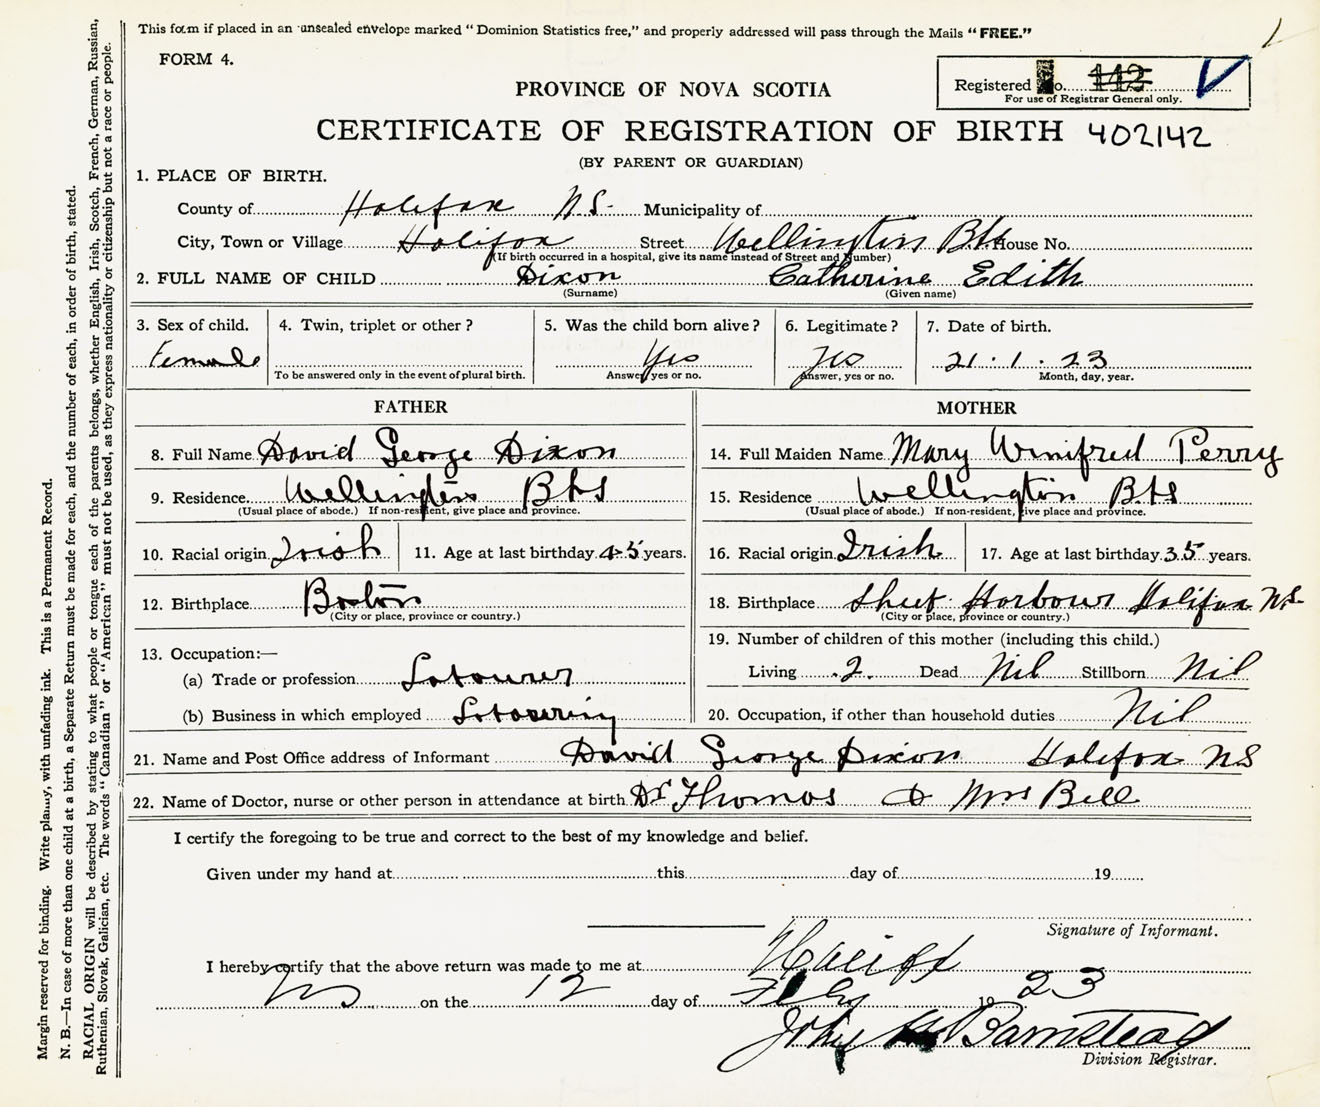 This form if placed in an unsealed envelope marked "Dominion Statistics free," and properly addressed will pass through the Mails "FREE."
FORM 4.
Registered No. 142
For use of Registrar General only.
PROVINCE OF NOVA SCOTIA
CERTIFICATE OF REGISTRATION OF BIRTH 402142
(BY PARENT OR GUARDIAN)
1. PLACE OF BIRTH.
County of Halifax N.S. Municipality of
City, Town or Village Halifax Street Wellington Bks House No.
(If birth occurred in a hospital, give its name instead of Street and Number)
2. FULL NAME OF CHILD Dixon Catherine Edith
(Surname) (Given name)
3. Sex of child. 4. Twin, triplet or other? 5. Was the child born alive? 6. Legitimate? 7. Date of birth.
Female Yes Yes 21 . 1 . 23
To be answered only in the event of plural birth. Answer, yes or no. Answer, yes or no. Month, day, year.
FATHER MOTHER
8. Full Name David George Dixon 14. Full Maiden Name Mary Winifred Perry
9. Residence Wellington Bks 15. Residence Wellington Bks
(Usual place of abode.) If non-resident, give place and province. (Usual place of abode.) If non-resident, give place and province.
10. Racial origin Irish 11. Age at last birthday 45 years. 16. Racial origin Irish 17. Age at last birthday 35 years.
12. Birthplace Boston 18. Birthplace Sheet Harbour Halifax N.S.
(City or place, province or country.) (City or place, province or country.)
13. Occupation:— 19. Number of children of this mother (including this child.)
(a) Trade or profession Labourer Living 2. Dead Nil Stillborn Nil
(b) Business in which employed Labouring 20. Occupation, if other than household duties Nil
21. Name and Post Office address of Informant David George Dixon Halifax NS
22. Name of Doctor, nurse or other person in attendance at birth Dr Thomas & Mrs Bell
I certify the foregoing to be true and correct to the best of my knowledge and belief.
Given under my hand at this day of 19
Signature of Informant.
I hereby certify that the above return was made to me at Halifax
NS on the 12 day of Feby 1923
John Barnstead
Division Registrar.
Margin reserved for binding. Write plainly, with unfading ink. This is a Permanent Record.
N. B.—In case of more than one child at a birth, a Separate Return must be made for each, and the number of each, in order of birth, stated.
RACIAL ORIGIN will be described by stating to what people or tongue each of the parents belongs, whether English, Irish, Scotch, French, German, Russian,
Ruthenian, Slovak, Galician, etc. The words "Canadian" or "American" must not be used, as they express nationality or citizenship but not a race or people.